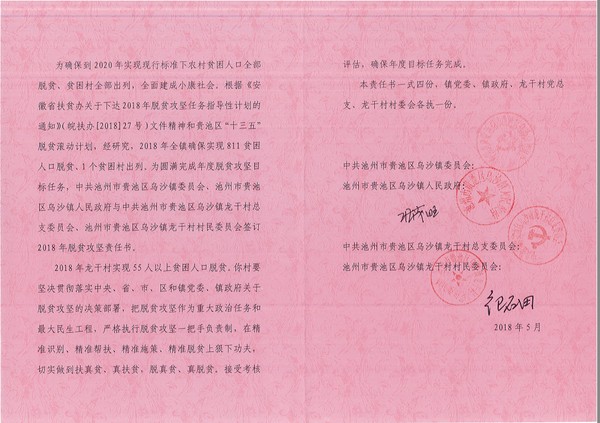 为确保到2020年实现现行标准下农村贫困人口全部
脱贫、贫困村全部出列，全面建成小康社会。根据《安
徽省扶贫办关于下达2018年脱贫攻坚任务指导性计划的
通知》（皖扶办[2018]27号）文件精神和贵池区“十三五”
脱贫滚动计划，经研究，2018年全镇确保实现811贫困
人口脱贫、1个贫困村出列。为圆满完成年度脱贫攻坚目
标任务，中共池州市贵池区乌沙镇委员会、池州市贵池
区乌沙镇人民政府与中共池州市贵池区乌沙镇龙干村总
支委员会、池州市贵池区乌沙镇龙干村村民委员会签订
2018年脱贫攻坚责任书。
2018年龙干村实现55人以上贫困人口脱贫。你村要
坚决贯彻落实中央、省、市、区和镇党委、镇政府关于
脱贫攻坚的决策部署，把脱贫攻坚作为重大政治任务和
最大民生工程，严格执行脱贫攻坚一把手负责制，在精
准识别、精准帮扶、精准施策、精准脱贫上狠下功夫，
切实做到扶真贫、真扶贫、脱真贫、真脱贫，接受考核
评估，确保年度目标任务完成。
本责任书一式四份，镇党委、镇政府、龙干村党总
支、龙干村村委会各执一份。
中共池州市贵池区乌沙镇委员会：
池州市贵池区乌沙镇人民政府：
中共池州市贵池区乌沙镇龙干村总支委员会：
池州市贵池区乌沙镇龙干村村民委员会：
2018年5月